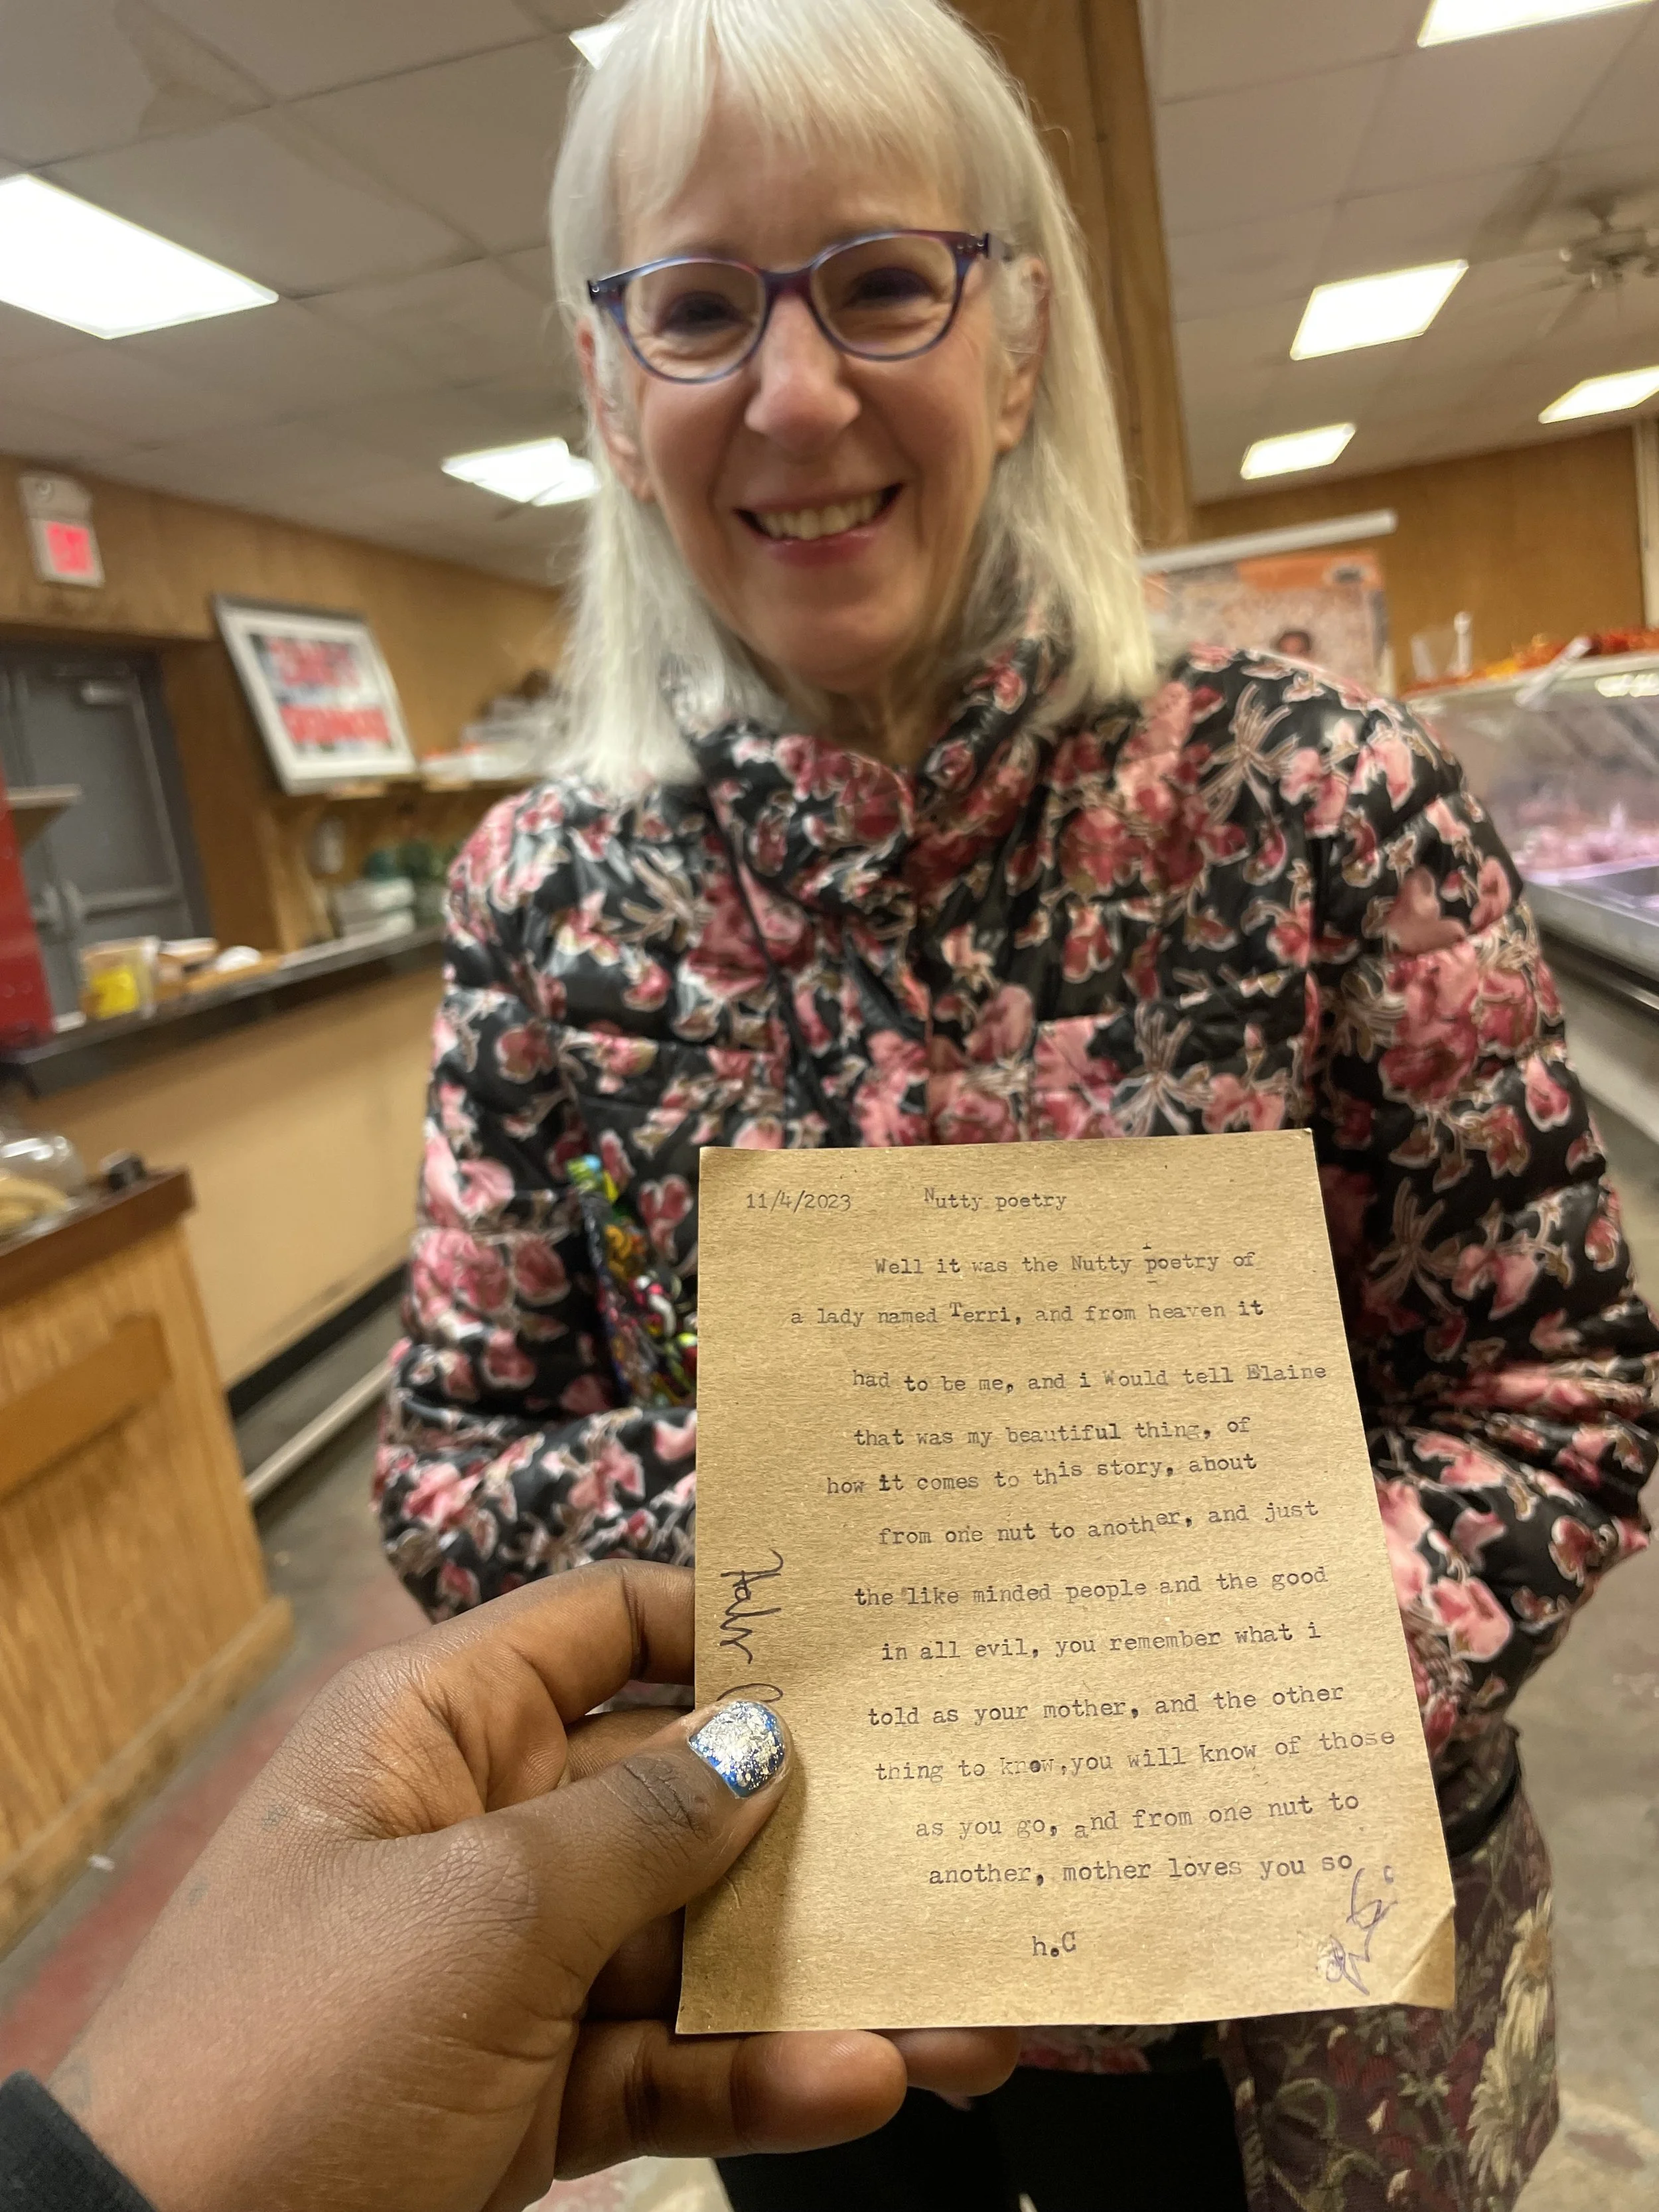 11/4/2023 Nutty poetry
Well it was the Nutty poetry of
a lady named Terri, and from heaven it
had to be me, and i Would tell Elaine
that was my beautiful thing, of
how it comes to this story, about
from one nut to another, and just
the like minded people and the good
in all evil, you remember what i
told as your mother, and the other
thing to know,you will know of those
as you go, and from one nut to
another, mother loves you so
h.C